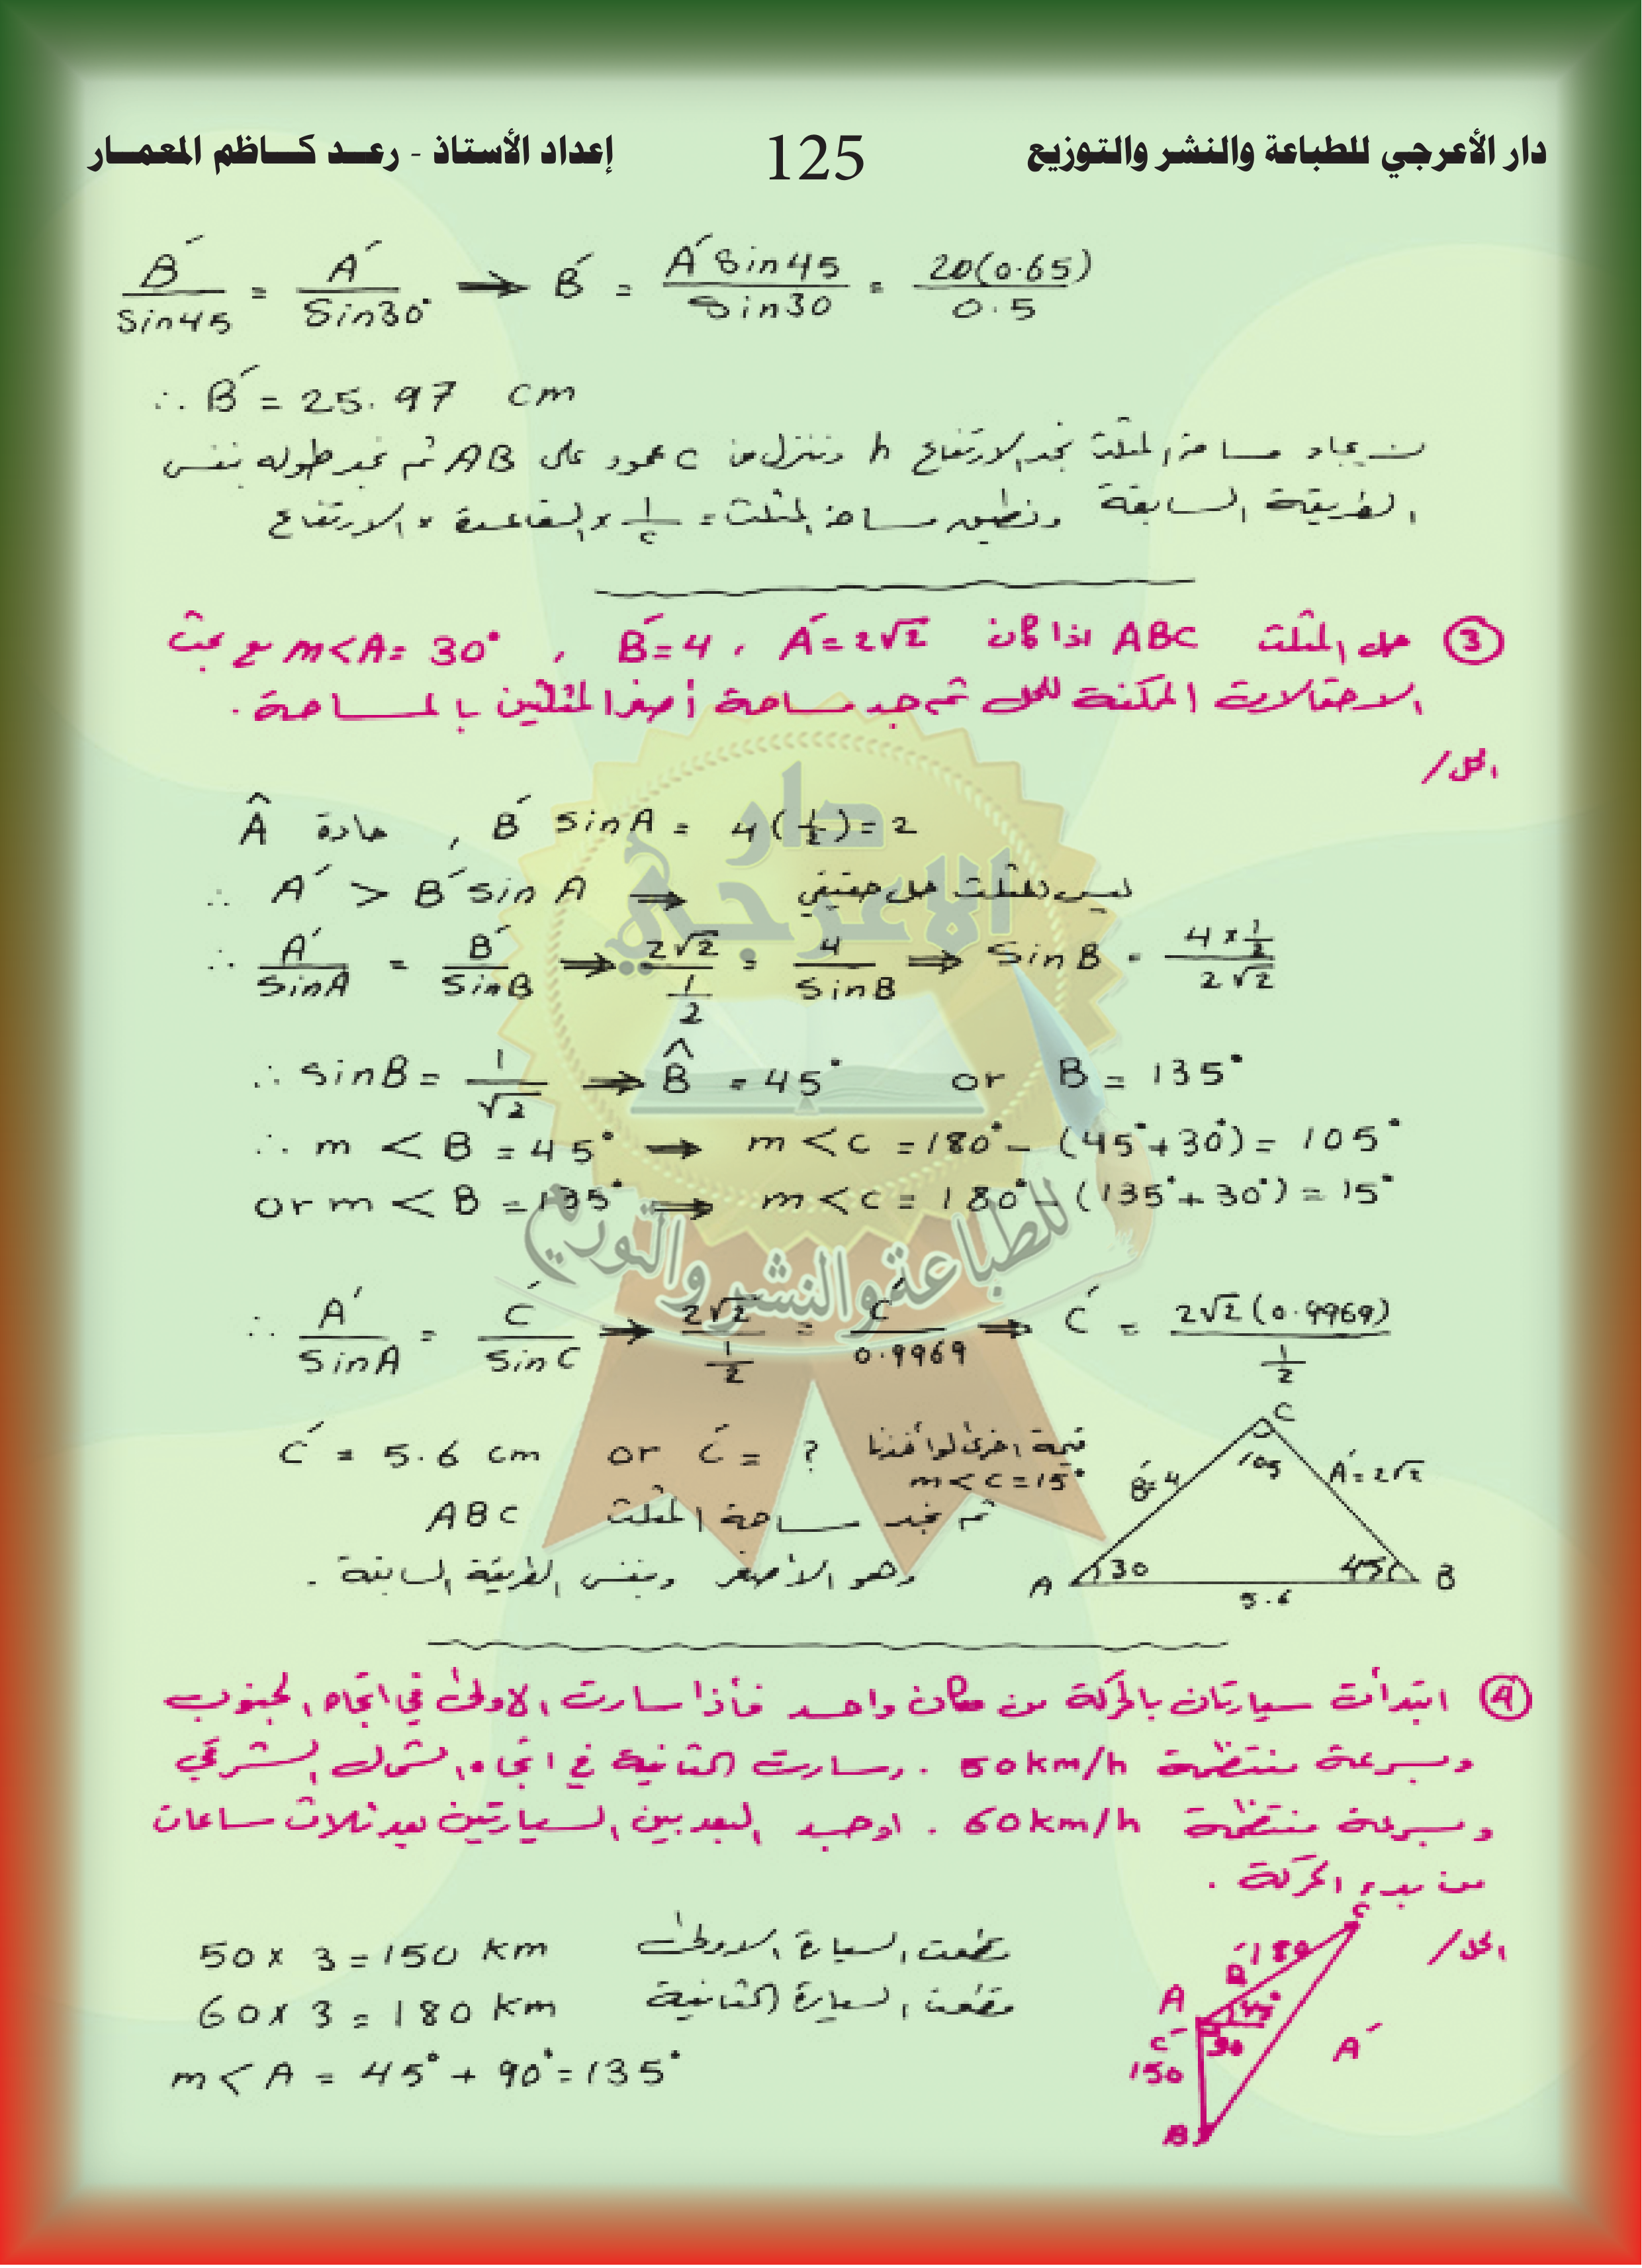 دار الأعرجي للطباعة والنشر والتوزيع 125 إعداد الأستاذ - رعد كاظم المعمار
B′/Sin45 = A′/Sin30° ⇒ B′ = A′Sin45/Sin30 = 20(0.65)/0.5
∴ B′ = 25.97 cm
لايجاد مساحة المثلث نجد الارتفاع h وننزل من C عمود على AB ثم نجد طوله بنفس
الطريقة السابقة ونطبق مساحة المثلث = ١/٢ × القاعدة × الارتفاع
③ حل المثلث ABC اذا كان A′=2√2 ، B′=4 ، m<A= 30° مع بحث
الاحتمالات الممكنة للحل ثم جد مساحة أصغر المثلثين بالمساحة .
الحل /
Â حادة , B′ sinA = 4(1/2)=2
∴ A′ > B′sinA ⇒ ليس للمثلث حل حقيقي
∴ A′/sinA = B′/sinB ⇒ 2√2/(1/2) = 4/sinB ⇒ sinB = (4×1/2)/(2√2)
∴ sinB = 1/√2 ⇒ B̂ = 45° or B = 135°
∴ m < B = 45° → m < C = 180° - (45°+30°) = 105°
or m < B = 135° ⇒ m < C = 180° - (135°+30°) = 15°
∴ A′/SinA = C′/SinC ⇒ 2√2/(1/2) = C′/0.9969 ⇒ C′ = 2√2(0.9969)/(1/2)
C′ = 5.6 cm or C′ = ? قيمة اخرى لو أخذنا
m < C = 15°
ثم نجد مساحة المثلث ABC
وهو الأصغر وبنفس الطريقة السابقة .
C
105
B′=4
A′=2√2
A 30 45 B
5.6
④ ابتدأت سيارتان بالحركة من مكان واحد فأذا سارت الاولى في اتجاه الجنوب
وبسرعة منتظمة 50km/h . وسارت الثانية في اتجاه الشمال الشرقي
وبسرعة منتظمة 60km/h . اوجد البعد بين السيارتين بعد ثلاث ساعات
من بدء الحركة .
الحل /
50 × 3 = 150 km قطعت السيارة الاولى
60 × 3 = 180 km قطعت السيارة الثانية
m < A = 45° + 90° = 135°
C
B′ 180
A
45°
C′ 90
150
A′
B
دار
الاعرجي
للطباعة والنشر والتوزيع